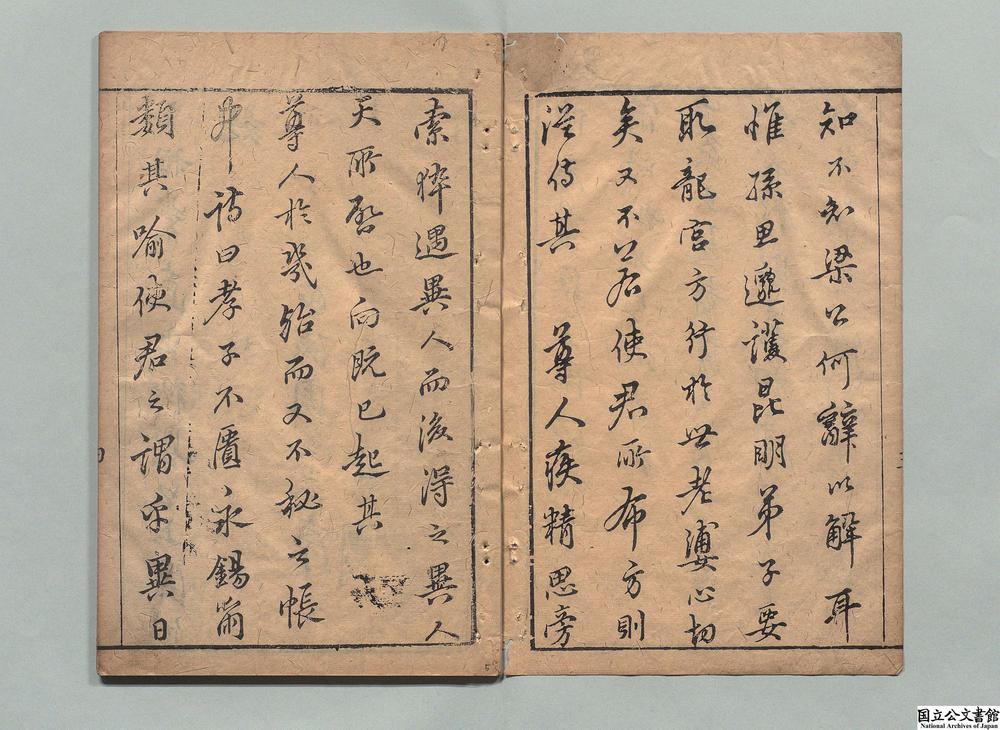 知不知梁公何辭以解耳
惟孫思邈護昆明弟子要
取龍宮方行於世老婆心切
矣又不若使君所布方則
從侍其　尊人疾精思旁
索猝遇異人而後得之異人
天所啓也向既已起其
尊人於幾殆而又不秘之帳
中詩曰孝子不匱永錫爾
類其喻使君之謂乎異日
国立公文書館
National Archives of Japan